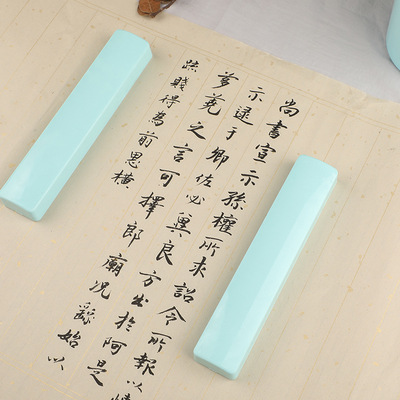 尚書宣示孫權所求詔令所報以
示逮于卿佐必冀良方出於阿是
芻蕘之言可擇郎廟況繇始以
疎賤得為前恩橫